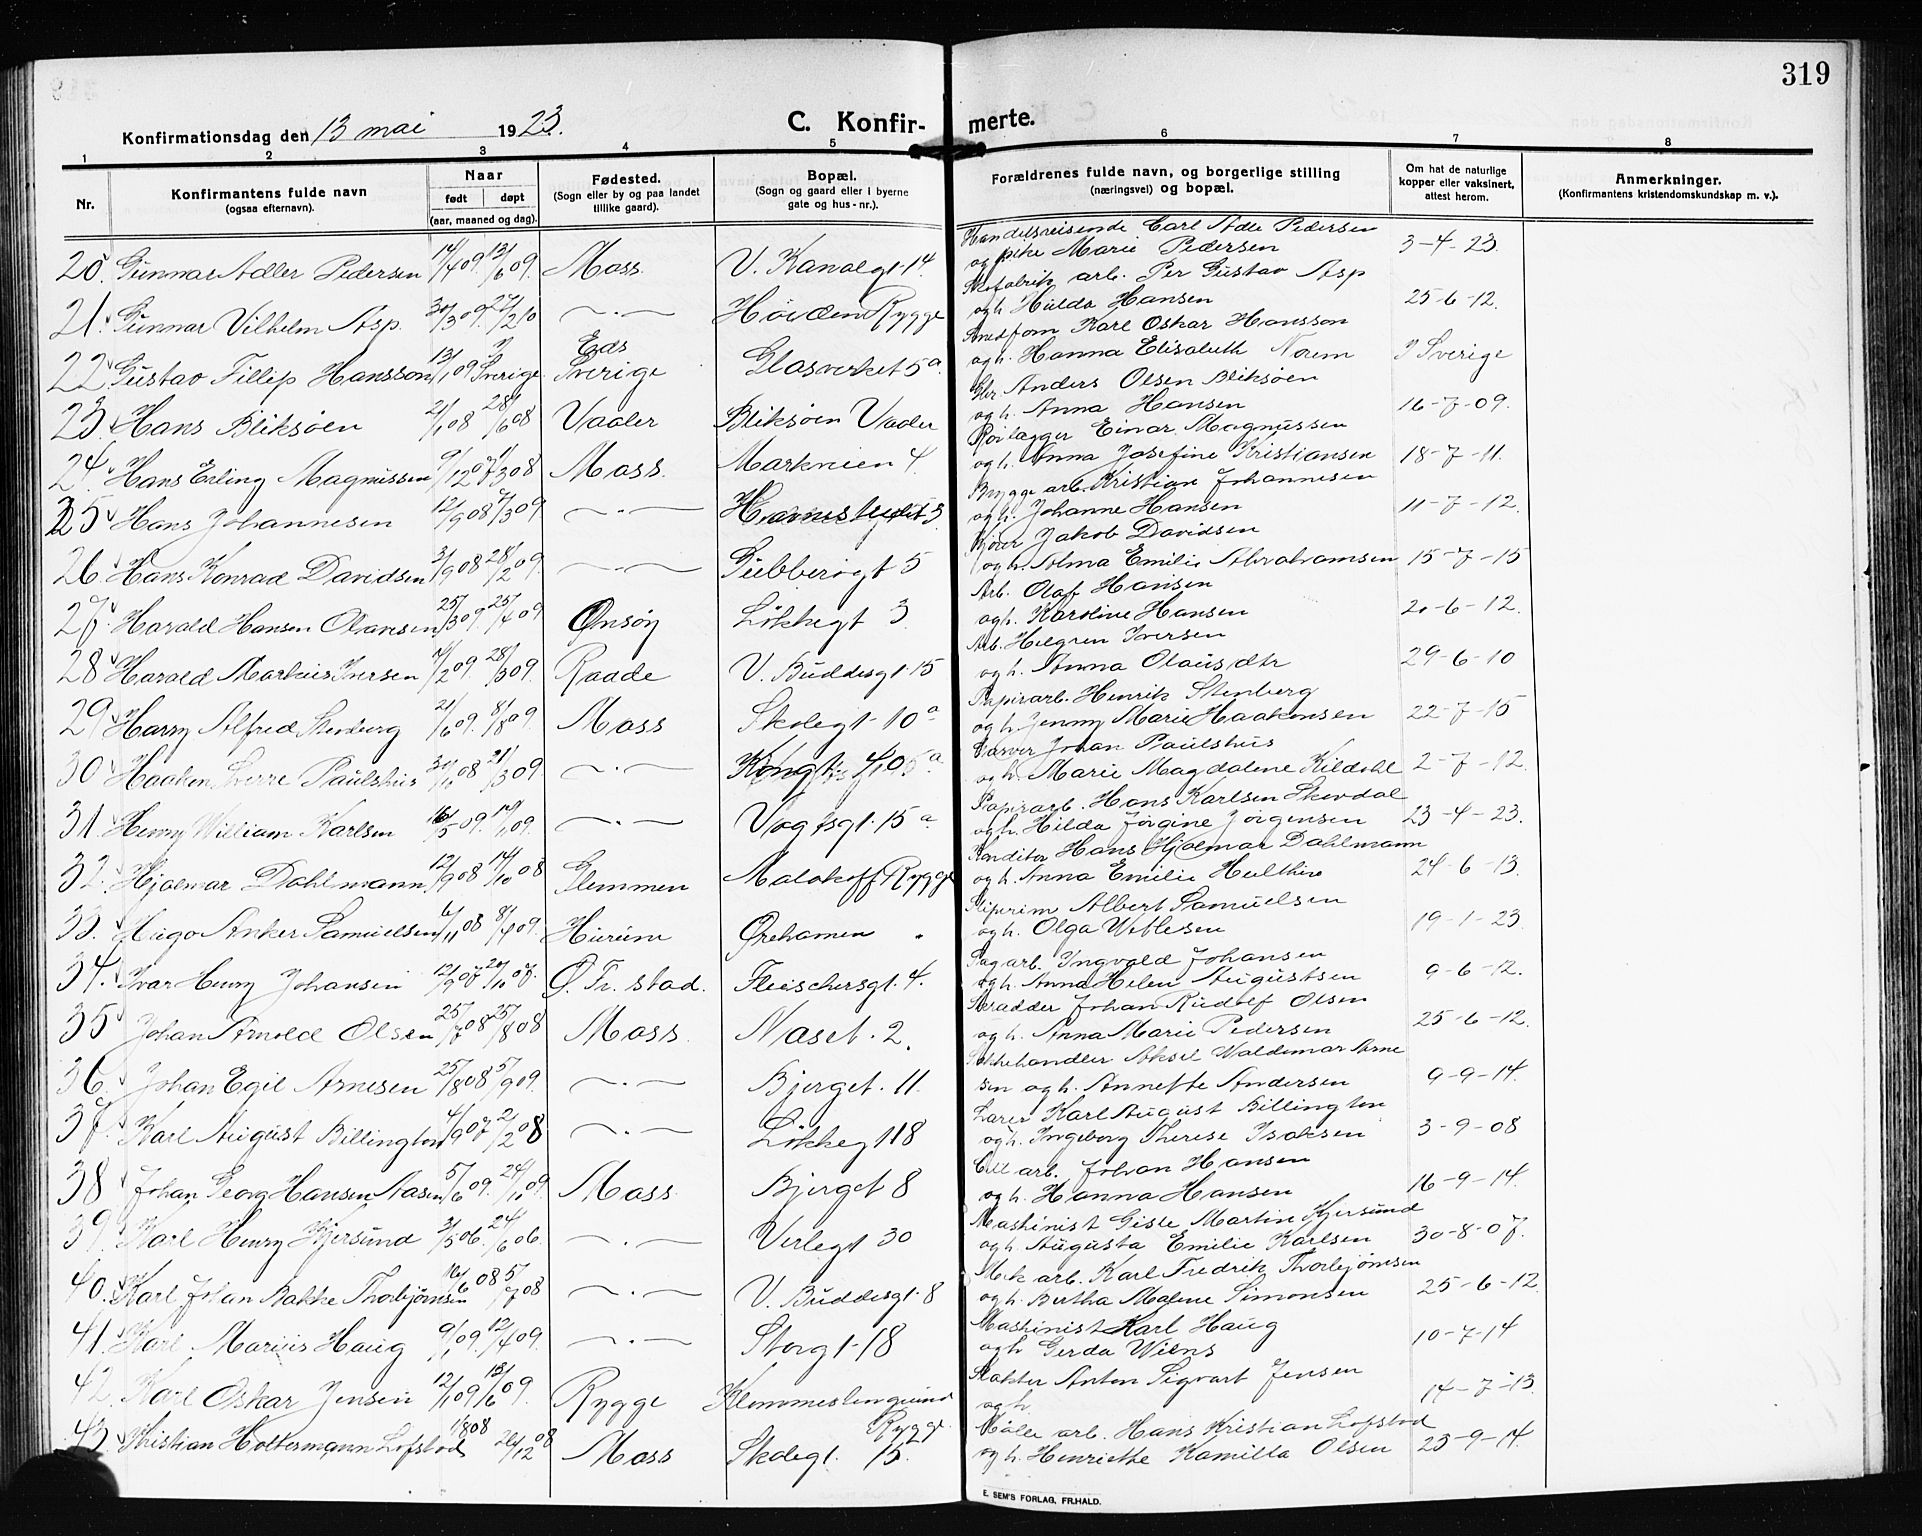 319
Konfirmationsdag den 13 mai 1923.
C. Konfir- merte.
1 2 3 4 5 6 7 8
Nr.
Konfirmantens fulde navn
(ogsaa efternavn).
Naar
født døpt
(aar, maaned og dag).
Fødested.
(Sogn eller by og paa landet
tillike gaard).
Bopæl.
(Sogn og gaard eller i byerne
gate og hus-nr.).
Forældrenes fulde navn, og borgerlige stilling
(næringsvei) og bopæl.
Om hat de naturlige
kopper eller vaksinert,
attest herom.
Anmerkninger.
(Konfirmantens kristendomskundskap m. v.).
Handelsreisende Carl Adle Pedersen
20. Gunnar Adler Pedersen 14/4 09. 13/6 09. Moss. V. Kanalgt. 14 og pike Marie Pedersen 3-4-23
Skofabrik arb. Per Gustav Asp
21. Gunnar Vilhelm Asp. 30/3 09. 27/2 10 —.— Høiden Rygge og h. Hulda Hansen 25-6-12.
Karl Oskar Hansson
22. Gustav Fillip Hansson 13/1 09 i Sverige Eds Sverige Glasverket 5a. og h. Hanna Elisabeth Norem I Sverige
Anders Olsen Bliksøen
23. Hans Bliksøen 21/1 08 28/6 08 Vaaler Bliksøen Vaaler og h. Anna Hansen 16-7-09.
Rørlægger Einar Magnussen
24. Hans Erling Magnussen 9/12 07 1/3 08 Moss. Markveien 4. og h. Anna Josefine Kristiansen 18-7-11.
Brygge arb. Kristian Johannesen
25 Hans Johannesen 12/9 08 7/3 09 —.— og h. Johanne Hansen 11-7-12.
Kjører Jakob Davidsen
26. Hans Konrad Davidsen 3/9 08 28/2 09. —.— Gubberogt 5 og h. Alma Emilie Abrahamsen 15-7-15
Arb. Olaf Hansen
27. Harald Hansen Olansen 25/3 09. 25/4 09 Onsøy Løkkegt 3 og h. Karoline Hansen 20-6-12.
Arb. Helgren Iversen
28 Harald Markus Iversen 7/2 09. 28/3 09. Raade V. Buddesgt. 15 og h. Anna Olausdtr 29-6-10
Papirarb. Henrik Stenberg
29 Harry Alfred Stenberg 21/6 09. 8/8 09 Moss Skolegt. 10a og h. Jenny Marie Haakonsen 22-7-15
Garver Johan Paulshus
30 Haakon Sverre Paulshus 31/10 08 21/3 09 —.— og h. Marie Magdalene Kildahl 2-7-12.
Papirarb. Hans Karlsen Skovdal
31 Henry William Karlsen 16/5 09. 19/1 09. —.— Vogtsgt. 15a og h. Hilda Jørgine Jørgensen 23-4-23.
Konditor Hans Hjalmar Dahlmann
32. Hjalmar Dahlmann 12/9 08 14/10 08 Glemmen Malakoff Rygge og h. Anna Emilie Hulthin 24-6-13.
Sliperim Albert Samuelsen
33. Hugo Anker Samuelsen 6/11 08 8/4 09. Hurum Ørehavnen og h. Olga Wetlesen 19-1-23
Sag arb. Ingvald Johansen
34. Ivar Henry Johansen 12/9 07 27/10 07. Ø. Fr. stad. Fleischersgt. 4. og h. Anna Helen Augustsen 9-6-12.
Johan Rudolf Olsen
35 Johan Arnold Olsen 25/7 08 25/8 08 Moss. Naset. 2. og h. Anna Marie Pedersen 25-6-12.
Sekkehandler Aksel Waldemar Arne
36. Johan Egil Arnesen 25/8 08 5/9 09. —.— Bjerget. 11. sen og h. Annette Andersen 9-9-14.
Karl August Billington
37. Karl August Billington 4/9 07 2/2 08 —.— Løkkegt 18 og h. Ingeborg Therese Isaksen 3-9-08
Cell arb. Johan Hansen
38 Johan Georg Hansen Aasen 5/6 09. 24/10 09. Moss Bjerget 8 og h. Hanna Hansen 16-9-14.
Maskinist Gisle Martin Kjersund
39. Karl Henry Kjersund 3/5 06. 24/6 06. —.— Verlegt 30 og h. Augusta Emilie Karlsen 30-8-07.
Mek arb. Karl Fredrik Thorbjørnsen
40. Karl Johan Bakke Thorbjørnsen 16/6 08 5/7 08 —.— V. Buddesgt. 8 og h. Bertha Malene Simonsen 25-6-12
Maskinist Karl Haug
41. Karl Marius Haug 9/1 09. 12/4 09. —.— Storgt. 18 og h Gerda Wiens 10-7-14
Slakter Anton Sigvart Jensen
42. Karl Oskar Jensen 12/1 09 13/6 09. Rygge Klommestengrund Rygge og h. 14-7-13
Mølle arb. Hans Kristian Lofstad
43. Kristian Holtermann Lofstad 1/8 08 26/12 08 Moss Skolegt. 15. og h. Henriette Kamilla Olsen 23-9-14.
E. SEM'S FORLAG, FR.HALD.